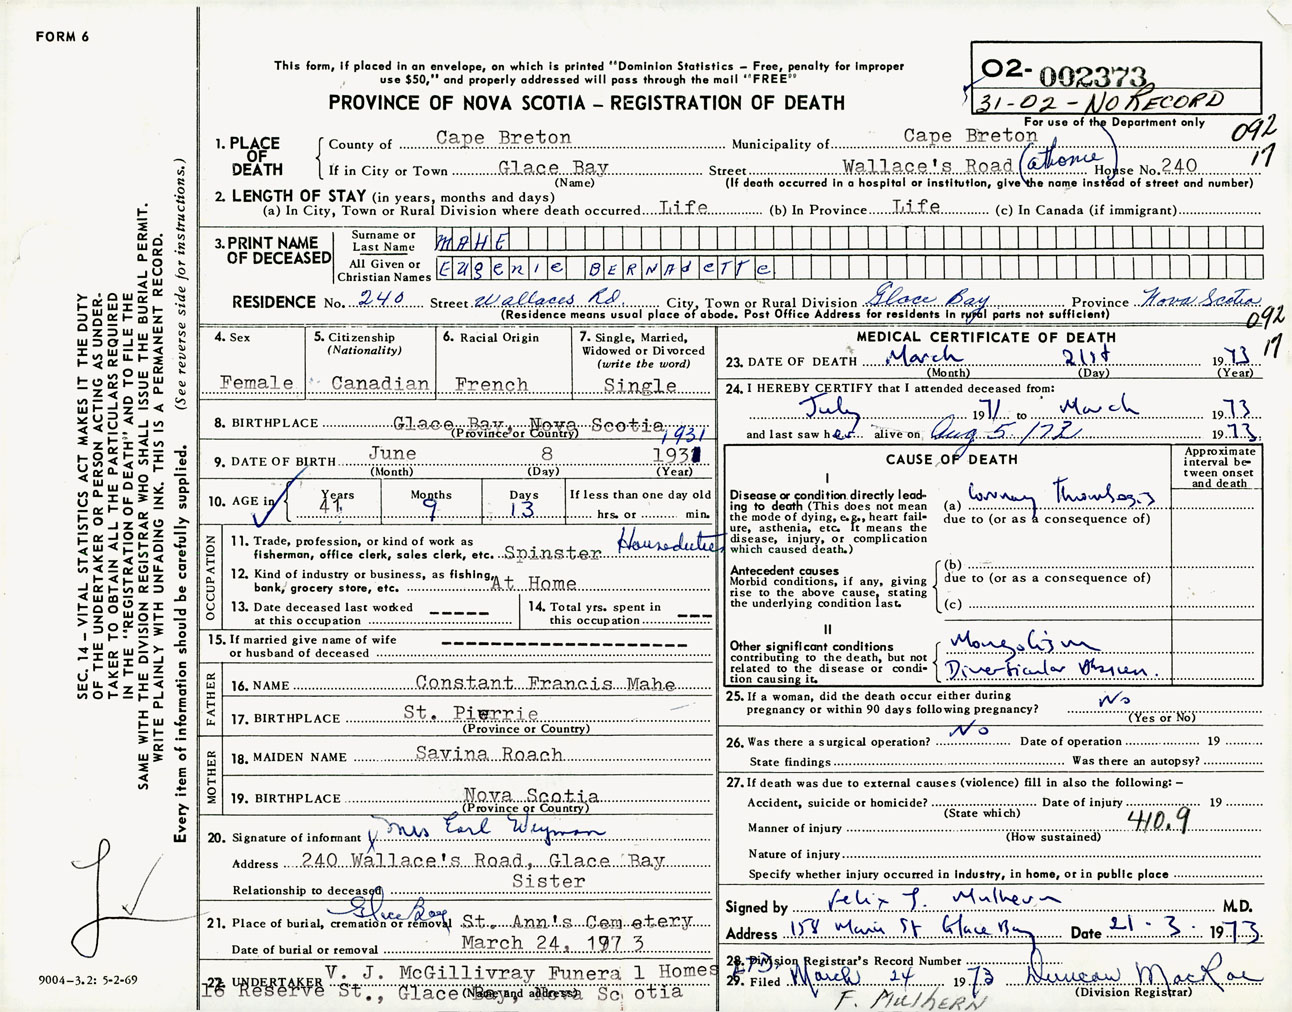 FORM 6
This form, if placed in an envelope, on which is printed "Dominion Statistics – Free, penalty for improper
use $50," and properly addressed will pass through the mail "FREE"
PROVINCE OF NOVA SCOTIA – REGISTRATION OF DEATH
02- 002373
31-02 - NO RECORD
For use of the Department only
092
17
1. PLACE OF DEATH
County of Cape Breton Municipality of Cape Breton
If in City or Town Glace Bay Street Wallace's Road (at home) House No. 240
(Name) (If death occurred in a hospital or institution, give the name instead of street and number)
2. LENGTH OF STAY (in years, months and days)
(a) In City, Town or Rural Division where death occurred Life (b) In Province Life (c) In Canada (if immigrant)
3. PRINT NAME OF DECEASED
Surname or Last Name MAHE
All Given or Christian Names EUgeNie BERNAdeTTe
RESIDENCE No. 240 Street Wallaces Rd. City, Town or Rural Division Glace Bay Province Nova Scotia
(Residence means usual place of abode. Post Office Address for residents in rural parts not sufficient)
092
17
4. Sex Female
5. Citizenship (Nationality) Canadian
6. Racial Origin French
7. Single, Married, Widowed or Divorced (write the word) Single
8. BIRTHPLACE Glace Bay, Nova Scotia
(Province or Country)
1931
9. DATE OF BIRTH June 8 1931
(Month) (Day) (Year)
10. AGE in Years 41 Months 9 Days 13 If less than one day old
hrs. or min.
OCCUPATION
11. Trade, profession, or kind of work as
fisherman, office clerk, sales clerk, etc. Spinster Houseduties
12. Kind of industry or business, as fishing,
bank, grocery store, etc. At Home
13. Date deceased last worked
at this occupation
14. Total yrs. spent in
this occupation
15. If married give name of wife
or husband of deceased
FATHER
16. NAME Constant Francis Mahe
17. BIRTHPLACE St. Pierrie
(Province or Country)
MOTHER
18. MAIDEN NAME Savina Roach
19. BIRTHPLACE Nova Scotia
(Province or Country)
20. Signature of informant X Mrs Earl Weyman
Address 240 Wallace's Road, Glace Bay
Relationship to deceased Sister
Glace Bay
21. Place of burial, cremation or removal St. Ann's Cemetery
Date of burial or removal March 24, 1973
22. UNDERTAKER V. J. McGillivray Funeral Homes
16 Reserve St., Glace Bay, Nova Scotia
(Name and address)
MEDICAL CERTIFICATE OF DEATH
23. DATE OF DEATH March 21st 1973
(Month) (Day) (Year)
24. I HEREBY CERTIFY that I attended deceased from:
July 1971 to March 1973
and last saw her alive on Aug 5 /72 1973
CAUSE OF DEATH
Approximate interval between onset and death
I
Disease or condition directly leading to death (This does not mean the mode of dying, e.g., heart failure, asthenia, etc. It means the disease, injury, or complication which caused death.)
(a) Coronary Thrombosis
due to (or as a consequence of)
Antecedent causes
Morbid conditions, if any, giving rise to the above cause, stating the underlying condition last.
(b)
due to (or as a consequence of)
(c)
II
Other significant conditions
contributing to the death, but not related to the disease or condition causing it.
Mongolism
Diverticular
25. If a woman, did the death occur either during
pregnancy or within 90 days following pregnancy? No
(Yes or No)
26. Was there a surgical operation? No Date of operation 19
State findings Was there an autopsy?
27. If death was due to external causes (violence) fill in also the following: –
Accident, suicide or homicide? Date of injury 19
(State which)
Manner of injury 410.9
(How sustained)
Nature of injury
Specify whether injury occurred in industry, in home, or in public place
Signed by Felix J. Mulhern M.D.
Address 158 Main St Glace Bay Date 21 - 3 - 1973
28. Division Registrar's Record Number
29. Filed March 24 1973 Duncan MacRae
(Division Registrar)
F. MULHERN
SEC. 14 – VITAL STATISTICS ACT MAKES IT THE DUTY
OF THE UNDERTAKER OR PERSON ACTING AS UNDER-
TAKER TO OBTAIN ALL THE PARTICULARS REQUIRED
IN THE "REGISTRATION OF DEATH" AND TO FILE THE
SAME WITH THE DIVISION REGISTRAR WHO SHALL ISSUE THE BURIAL PERMIT.
WRITE PLAINLY WITH UNFADING INK. THIS IS A PERMANENT RECORD.
Every item of information should be carefully supplied. (See reverse side for instructions.)
9004-3.2: 5-2-69